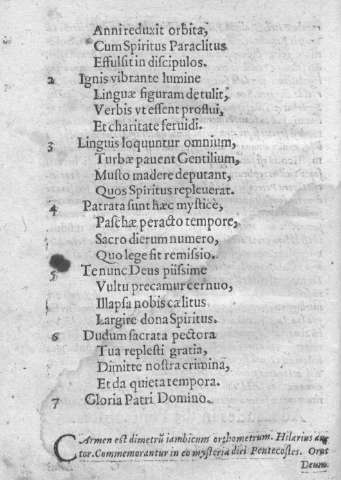 Anni reduxit orbita,
Cum Spiritus Paraclitus
Effulsit in discipulos.
2 Ignis vibrante lumine
Linguæ figuram detulit,
Verbis vt essent proflui,
Et charitate feruidi.
3 Linguis loquuntur omnium,
Turbæ pauent Gentilium,
Musto madere deputant,
Quos Spiritus repleuerat.
4 Patrata sunt hæc mystice,
Paschæ peracto tempore,
Sacro dierum numero,
Quo lege fit remissio.
5 Te nunc Deus piissime
Vultu precamur cernuo,
Illapsa nobis cælitus
Largire dona Spiritus.
6 Dudum sacrata pectora
Tua replesti gratia,
Dimitte nostra crimina,
Et da quieta tempora.
7 Gloria Patri Domino.
CArmen est dimetrũ iambicum orthometrum. Hilarius auc
tor. Commemorantur in eo mysteria diei Pentecostes. Orat
Deum.